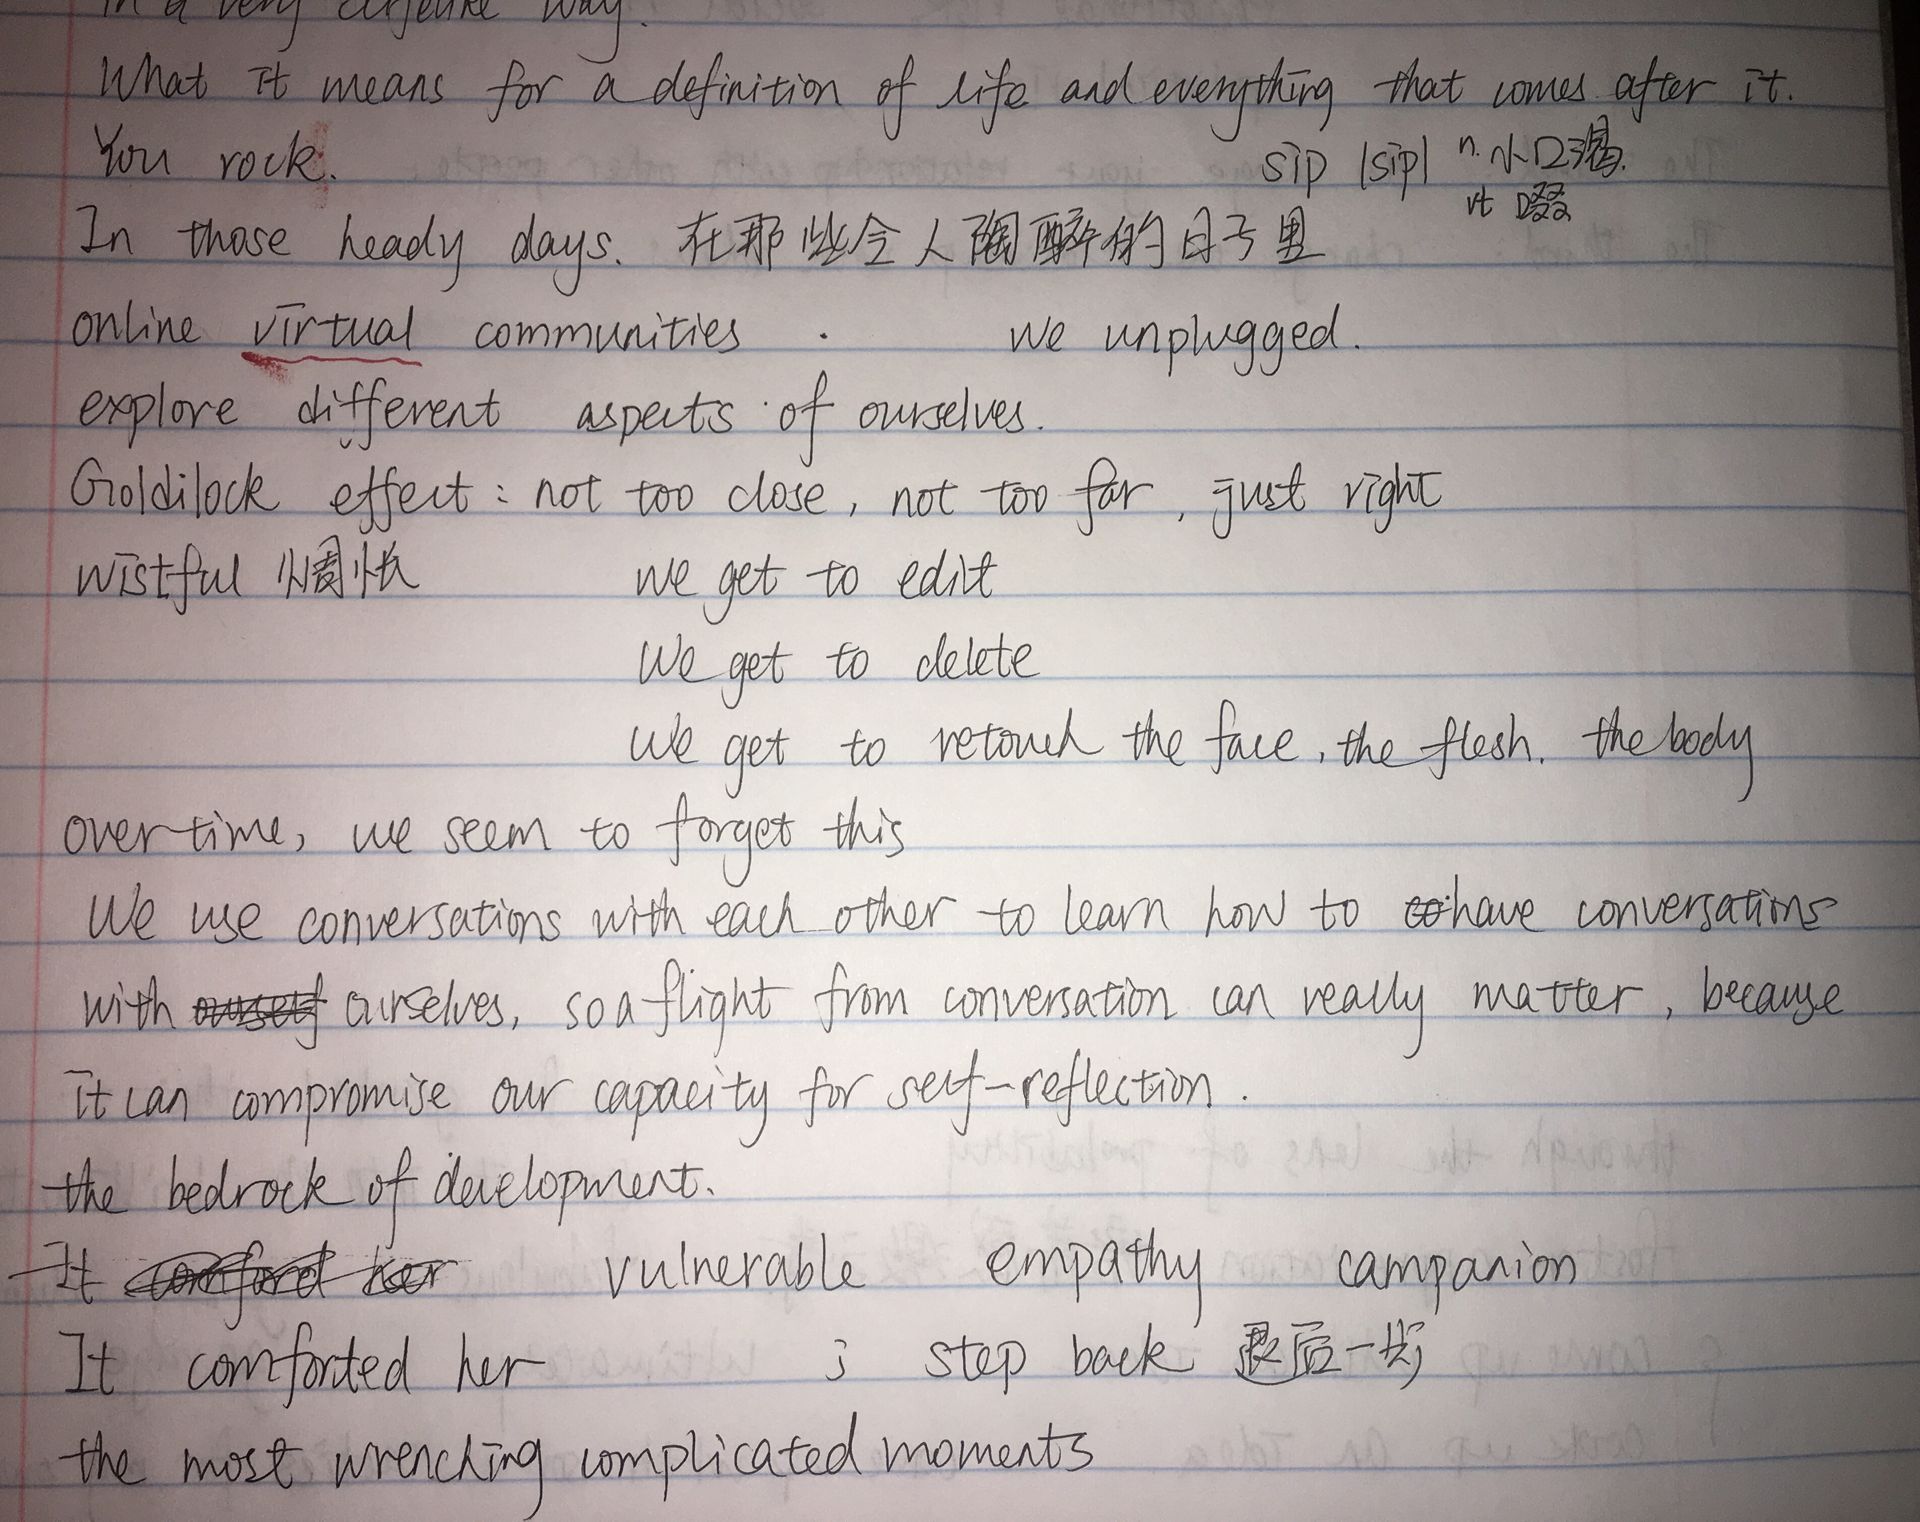 in a very way.
What it means for a definition of life and everything that comes after it.
You rock.
sip |sip| n. 小口喝.
vt 啜
In those heady days. 在那些令人陶醉的日子里
online virtual communities . we unplugged.
explore different aspects of ourselves.
Goldilock effect: not too close, not too far, just right
wistful 惆怅 we get to edit
We get to delete
We get to retouch the face, the flesh. the body
over time, we seem to forget this
We use conversations with each other to learn how to have conversations
with ourselves, so a flight from conversation can really matter, because
it can compromise our capacity for self-reflection.
the bedrock of development.
It comford her vulnerable empathy campanion
It comforted her ; step back 退后一步
the most wrenching complicated moments